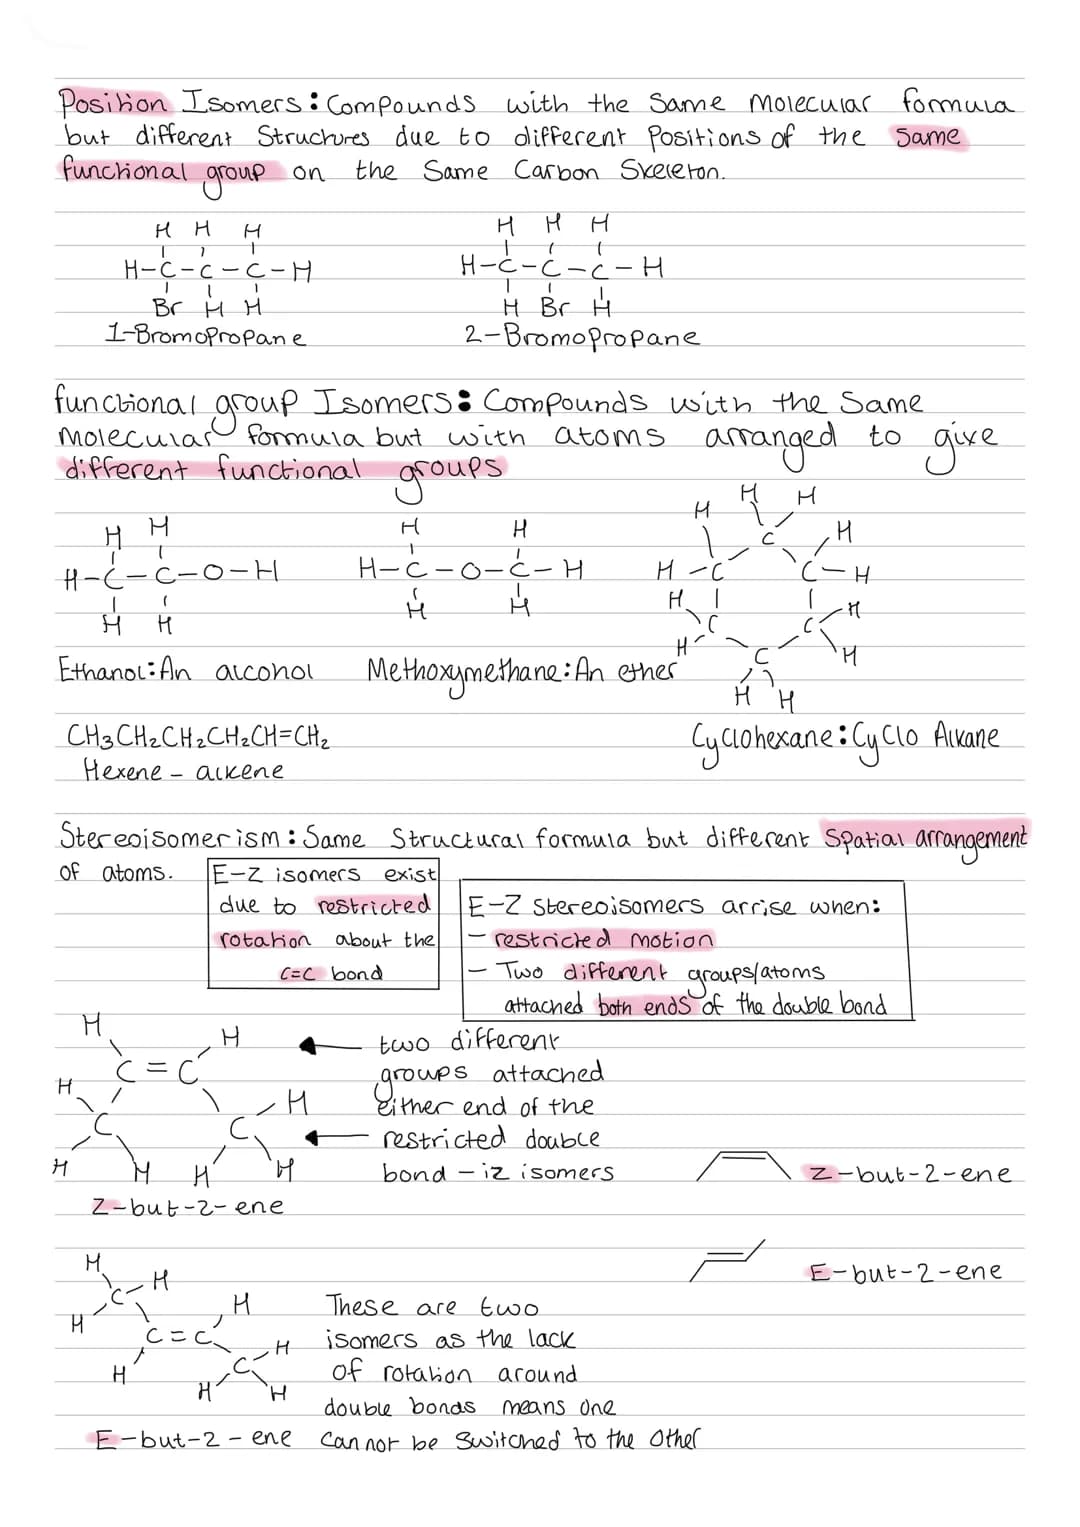 Position Isomers: Compounds with the same molecular formula
but different structures due to different positions of the same
functional group on the same carbon skeleton.
H H H
H-C-C-C-H
Br H H
1-Bromopropane
H H H
H-C-C-C-H
H Br H
2-Bromopropane
functional group Isomers: Compounds with the same
molecular formula but with atoms arranged to give
different functional groups
H H
H-C-C-O-H
H H
Ethanol: An alcohol
H H
H-C-O-C-H
H H
Methoxymethane: An ether
H H H
C H
H-C C-H
H C C H
H C H
H H
Cyclohexane: Cyclo Alkane
CH3CH2CH2CH2CH=CH2
Hexene - alkene
Stereoisomerism: Same structural formula but different spatial arrangement
of atoms.
E-Z isomers exist
due to restricted
rotation about the
C=C bond
E-Z stereoisomers arrise when:
- restricted motion
- Two different groups/atoms
attached both ends of the double bond
H H
C=C
H H
C C
H H H H
Z-but-2-ene
two different
groups attached
either end of the
restricted double
bond - iz isomers
Z-but-2-ene
E-but-2-ene
H
C-H
H H
C=C H
H C
H H
E-but-2-ene
These are two
isomers as the lack
of rotation around
double bonds means one
cannot be switched to the other